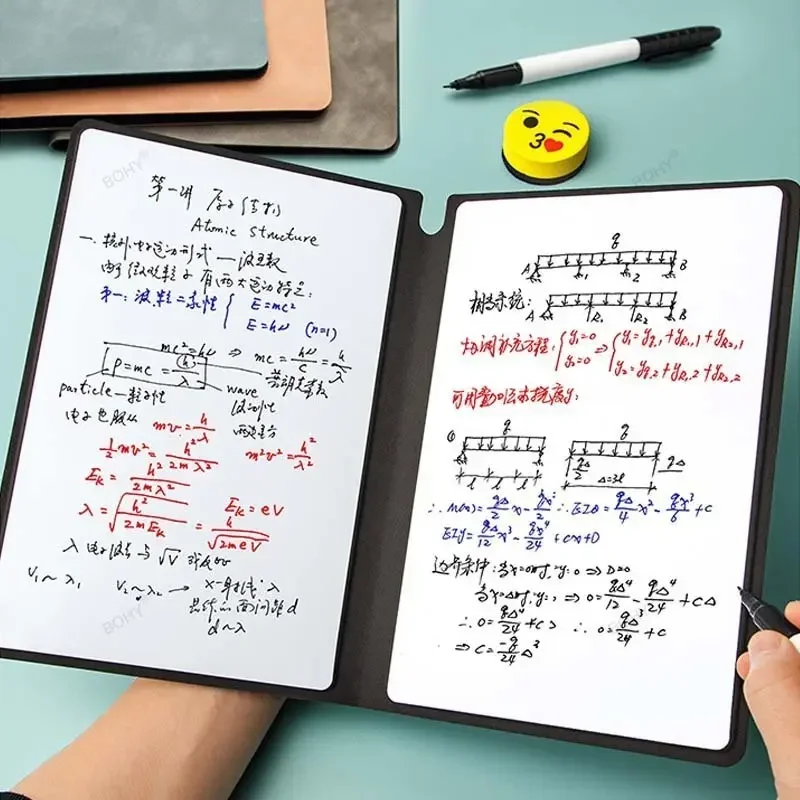 BOHY
第一讲 原子结构
Atomic structure
一. 核外电子运动形式 — 波函数
由于微观粒子有两大运动特点:
第一: 波粒二象性 { E=mc²
E=hν (n=1)
mc²=hν ⇒ mc = hν/c = h/λ
P=mc = h/λ
普朗克常数
particle — 粒子性
wave
波动性
电子也服从 mv = h/λ
½mv² = h²/2mλ² m²v² = h²/λ²
E_K = h²/2mλ²
λ = √(h²/2mE_K) = h/√(2meV) E_K = eV
λ 电子波长与 √V 成反比
V₁~λ₁ V₂~λ₂ → x-射线 λ
晶体 面间距 d
d~λ
BOHY
BOHY
q
A 1 2 B
相当系统: A R₁ R₂ B
协调补充方程, { y₁=0 y₂=0 ⇒ { y₁=y_{q,1}+y_{R₁,1}+y_{R₂,1}
y₂=y_{q,2}+y_{R₁,2}+y_{R₂,2}
可用叠加法求挠度y:
① q q
l l l qΔ/2 Δ=3l qΔ
∴ M(x) = qΔ/2 x - qx²/2 ∴ EIθ = qΔ/4 x² - qx³/6 + C
EIy = qΔ/12 x³ - qx⁴/24 + Cx+D
边界条件: 当x=0时, y=0 ⇒ D=0
当x=Δ时, y=0, ⇒ 0 = qΔ⁴/12 - qΔ⁴/24 + CΔ
∴ 0 = qΔ⁴/24 + CΔ ∴ 0 = qΔ³/24 + C
⇒ C = -q/24 Δ³